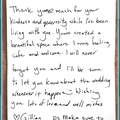 Thank you so much for your
kindness and generosity while I've been
living with you. You've created a
beautiful space where I now feeling
safe and welcome. I will never
forget you and I'll be sure
to let you know about the wedding
whenever it happens. Wishing
you lots of love and well wishes
Gillian PS Make sure to